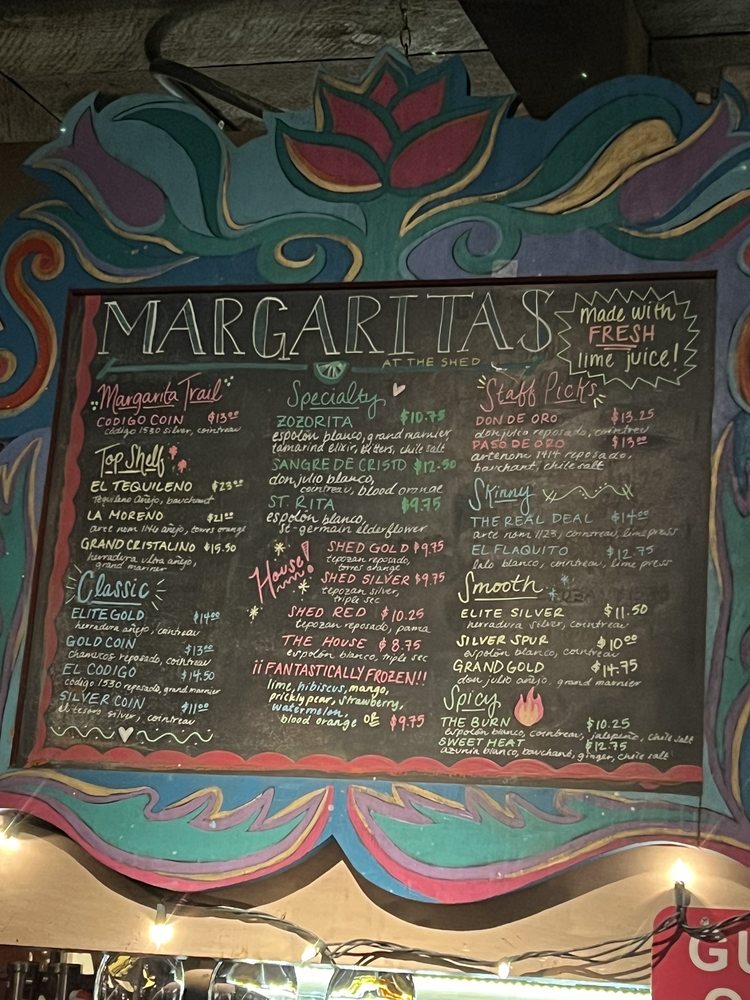 MARGARITAS
AT THE SHED
made with
FRESH
lime juice!
Margarita Trail
CODIGO COIN $13.00
código 1530 silver, cointreau
Top Shelf
EL TEQUILENO $23.00
Tequileno Añejo, bauchant
LA MORENO $21.00
arte nom 1146 añejo, torres orange
GRAND CRISTALINO $15.50
herradura ultra añejo,
grand marnier
Classic
ELITE GOLD $14.00
herradura añejo, cointreau
GOLD COIN $13.00
chamucos reposado, cointreau
EL CODIGO $14.50
codigo 1530 reposado, grand marnier
SILVER COIN $11.00
el tesoro silver, cointreau
Specialty
ZOZORITA $10.75
espolón blanco, grand marnier
tamarind elixir, bitters, chile salt
SANGRE DE CRISTO $12.50
don julio blanco,
cointreau, blood orange
ST. RITA $9.75
espolón blanco,
st-germain elderflower
House!
SHED GOLD $9.75
tepozan reposado,
torres orange
SHED SILVER $9.75
tepozan silver,
triple sec
SHED RED $10.25
tepozan reposado, pama
THE HOUSE $8.75
espolón blanco, triple sec
¡¡FANTASTICALLY FROZEN!!
lime, hibiscus, mango,
prickly pear, strawberry,
watermelon,
blood orange OE $9.75
Staff Picks
DON DE ORO $13.25
don julio reposado, cointreau
PASO DE ORO $13.00
artenom 1414 reposado,
bauchant, chile salt
Skinny
THE REAL DEAL $14.00
arte nom 1123, cointreau, lime press
EL FLAQUITO $12.75
lalo blanco, cointreau, lime press
Smooth
ELITE SILVER $11.50
herradura silver, cointreau
SILVER SPUR $10.00
espolón blanco, cointreau
GRAND GOLD $14.75
don julio añejo, grand marnier
Spicy
THE BURN $10.25
espolón blanco, cointreau, jalapeño, chile salt
SWEET HEAT $12.75
azunia blanco, bauchant, ginger, chile salt